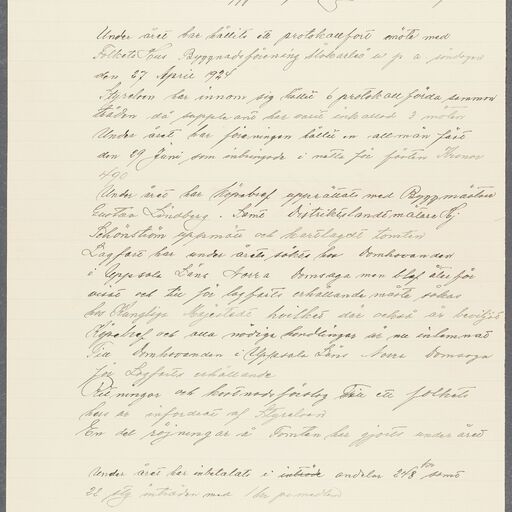 Under året har hållits ett protokollfört möte med
Folkets Hus Byggnadsförening Slökarleö u p a söndagen
den 27 April 1924
Styrelsen har innom sig hållit 6 protokollförda samman
träden då suppleant har varit inkallad 3 möten
Under året har föreningen hållit en allmän fäst
den 29 Juni som inbringade i netto för fästen Kronor
490
Under året har köpebref upprättats med Byggmästare
Gustav Lindberg. Samt Distriktslandtmätare Hj
Schönström uppmäte och kartlagdt tomten
Lagfart har under året sökts hos Domhovanden
i Uppsala Läns Norra Domsaga men blef åter för
visat och till för lagfarts erhållande måste sökas
hos Kunglige Majestädt hvilket der också är bevilj
Köpebref och alla nödiga handlingar är nu inlämnat
Till Domhovanden i Uppsala Läns Norra Domsaga
för Lagfarts erhållande
Ritningar och kostnadsförslag Till ett folkets
hus är infordrat af Styrelsen
En del röjningar å Tomten har gjorts under året
Under året har inbetalats i inträde andelar 248 kr samt
22 stg inträden med 1 kr pr medlem